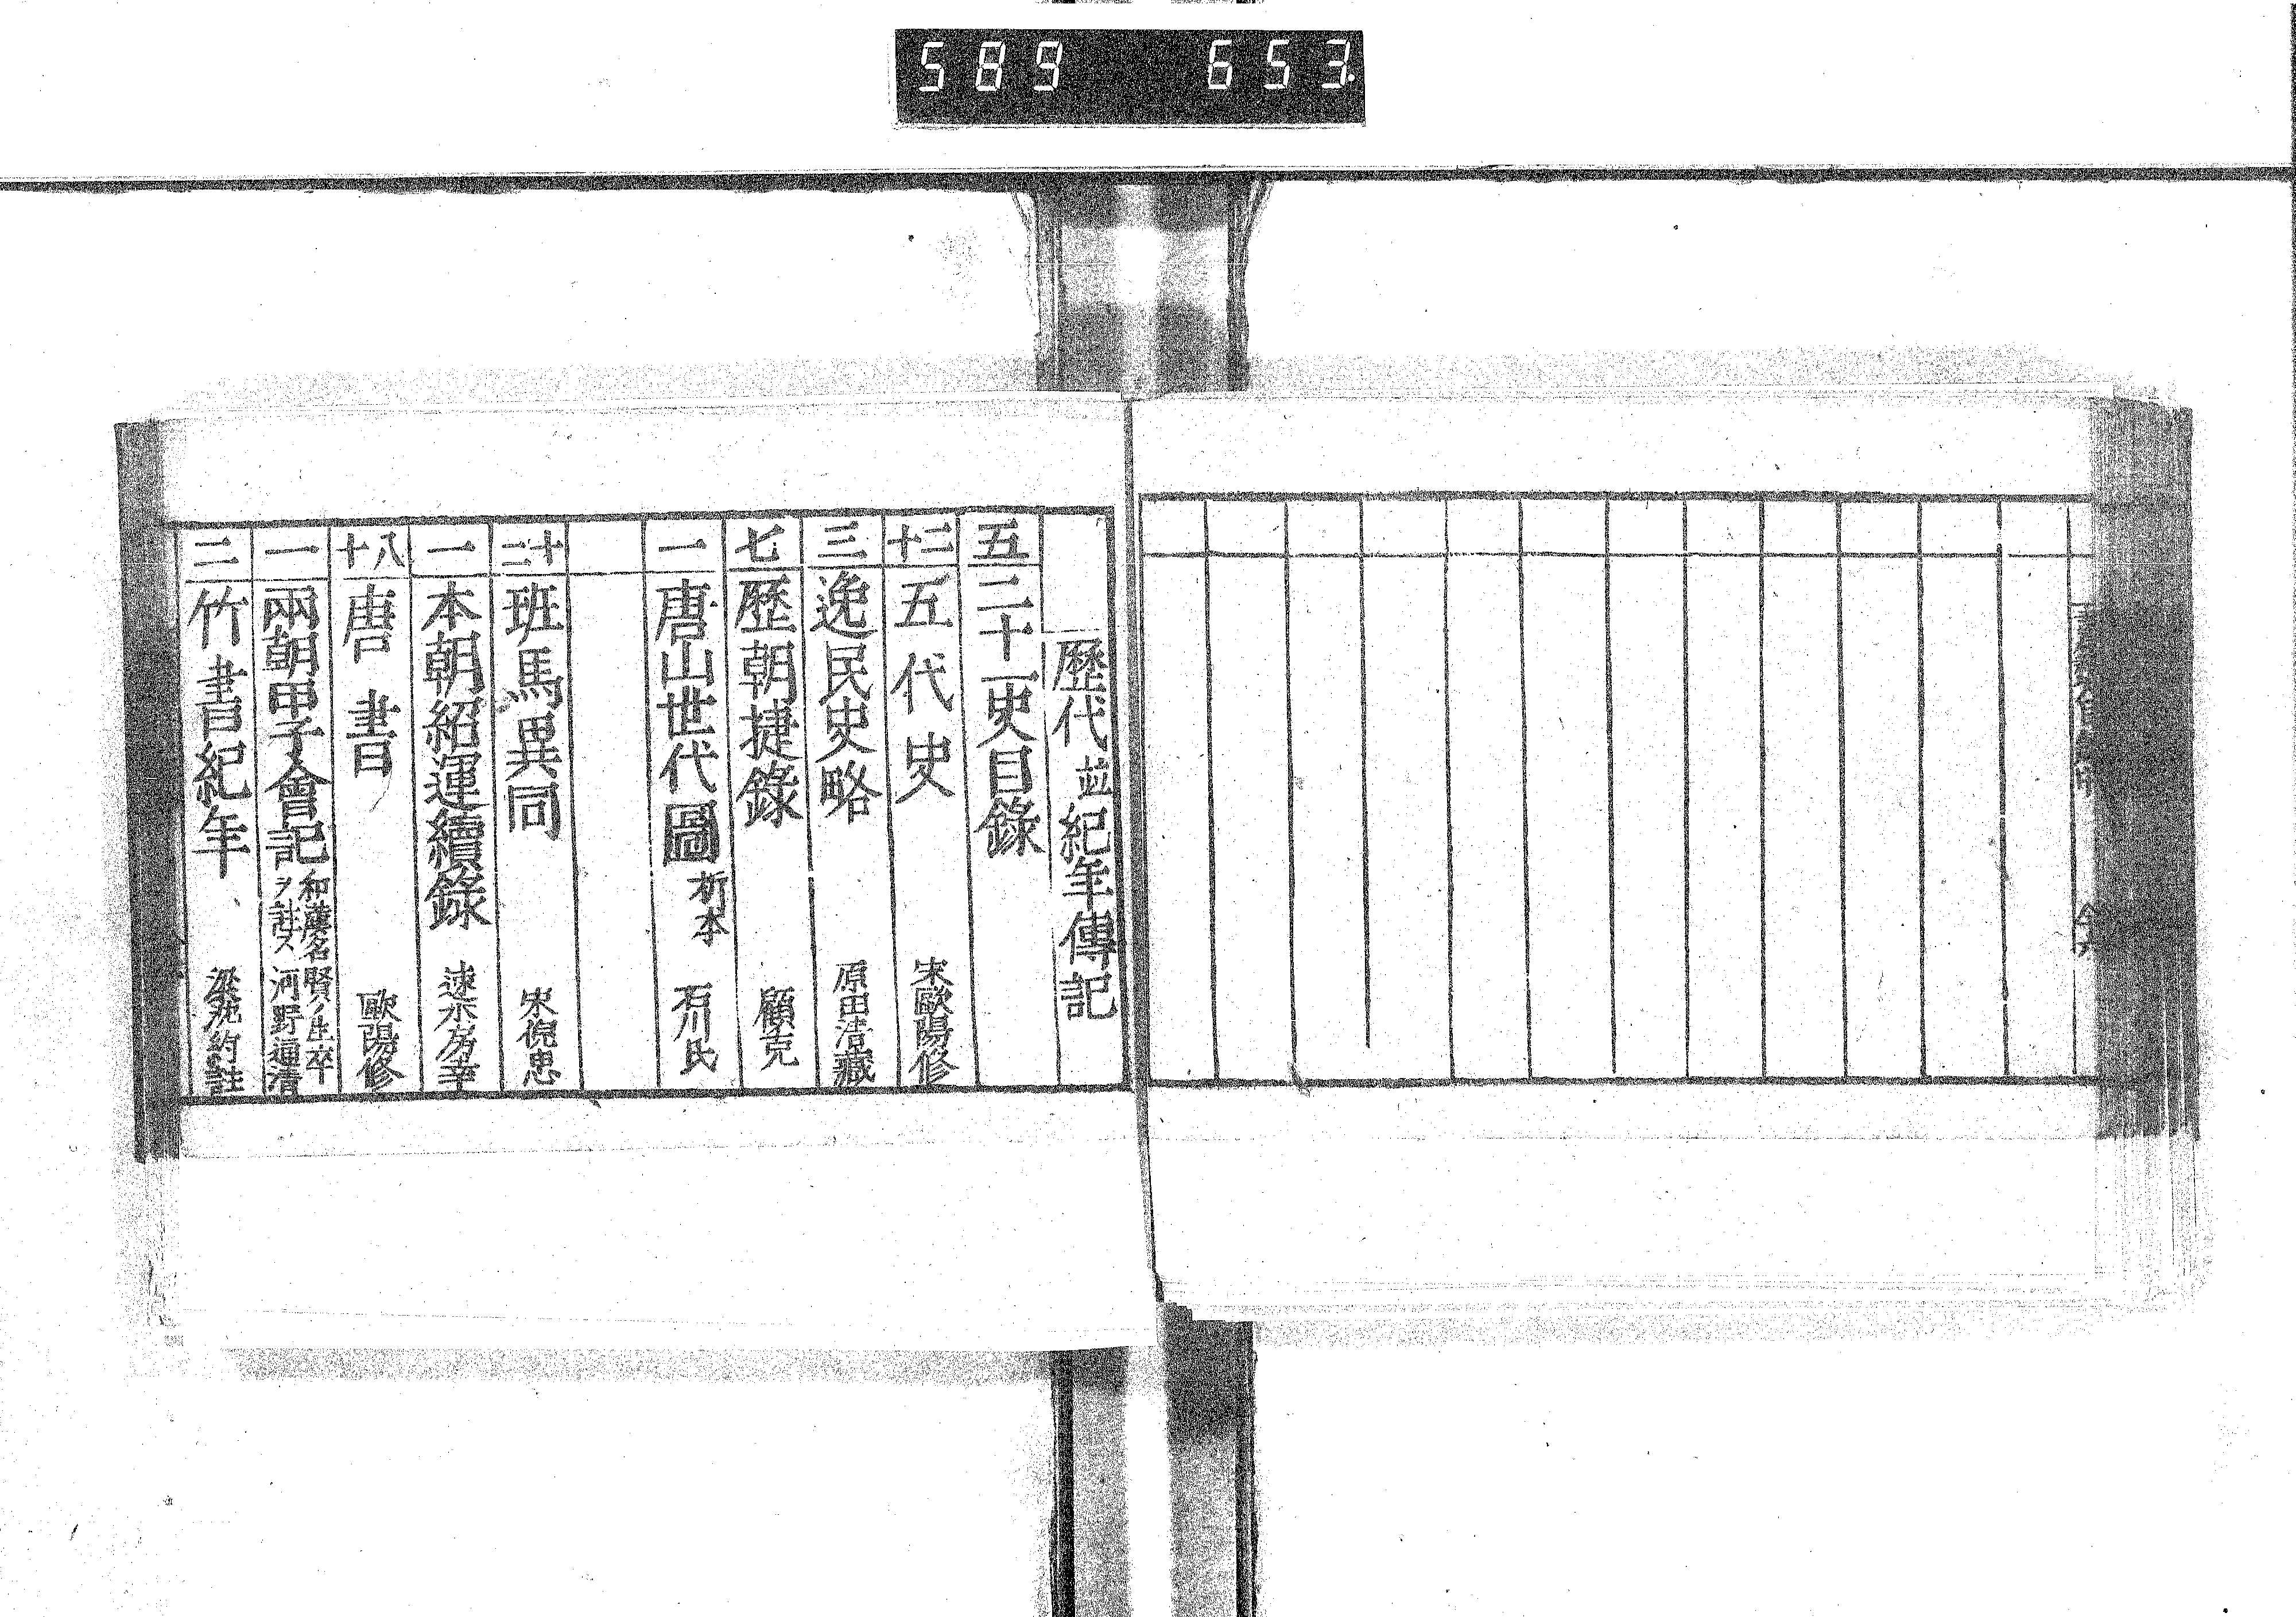 589 653.
歴代並紀年傳記
五 二十一史目錄
十二 五代史 宋歐陽修
三 逸民史略 原田浩藏
七 歴朝捷錄 顧充
一 唐山世代圖 折本 石川氏
十二 班馬異同 宋倪思
一 本朝紹運續錄 速水房幸
十八 唐書 歐陽修
一 兩朝甲子會記 和漢名賢ノ生卒ヲ註ス 河野通清
二 竹書紀年 梁沈約註